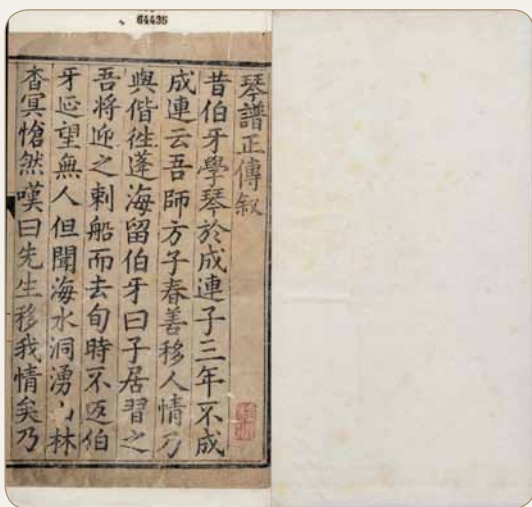 64436
琴譜正傳叙
昔伯牙學琴於成連子三年不成
成連云吾師方子春善移人情乃
與偕徃蓬海留伯牙曰子居習之
吾將迎之刺船而去旬時不返伯
牙延望無人但聞海水洞湧山林
杳冥愴然嘆曰先生移我情矣乃